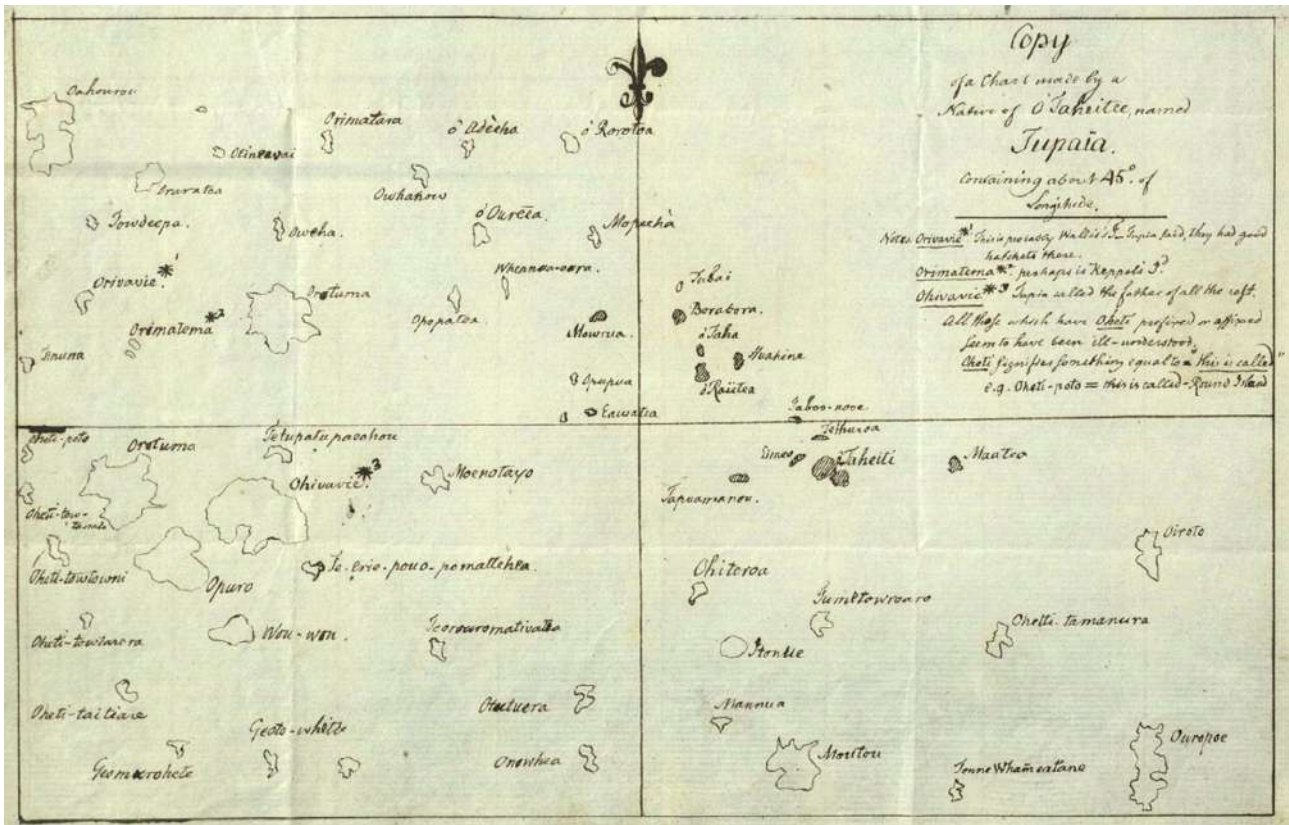 Copy
of a Chart made by a
Native of O'Taheitee, named
Tupaïa.
Containing about 45°. of
Longitude.
Notes. Orivavie*1 This is probably Wallis's Id_ Tupia said, they had good
hatchets there.
Orimatema*2. perhaps is Keppel's Id.
Ohivavie*3 Tupia called the father of all the rest.
All those which have Oheti prefixed or affixed
seem to have been ill-understood.
Oheti signifies something equal to "this is called"
e.g. Oheti-poto = this is called-Round Island
Oahourou
Orimatara
ó Adècha
ó Rorotoa
Oraratoa
Owhahow
Towdeepa.
Oweha.
ó Ourēea.
Mopechà
Orivavie*1
Orotuma
Whennua-oura.
Tabai
Orimatema*2
Opopatea
Mowrua.
Borabora.
ó Taha
Huahine
Tinuna
Opupua
ó Raiitea
Eawatea
Taboo-nooe.
Oheti-poto
Orotuma
Tetupatupaeahou
Tethuroa
Ohivavie*3
Moenotayo
Eimeo
Taheiti
Maatea
Tapuamanou.
Oheti-towtowni
Opuro
Te-erie-pouo-pomattehea.
Ohiteroa
Oiroto
Oheti-towtwera
Wou-wou.
Teorouromativatea
Tumetowroaro
Oheti-tamanura
Itonue
Oheti-taitiare
Otutuera
Mannua
Onowhea
Moutou
Ouropoe